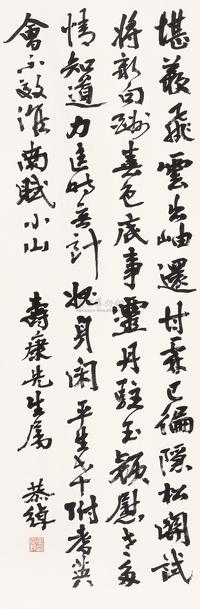 堪羨飛雲出岫還甘霖已徧隱松關試
將新句酬春色底事靈丹駐玉顏慰老多
情知道力匡時無計愧身閑平生十附耆英
會不敢淮南賦小山
壽康先生屬
恭綽